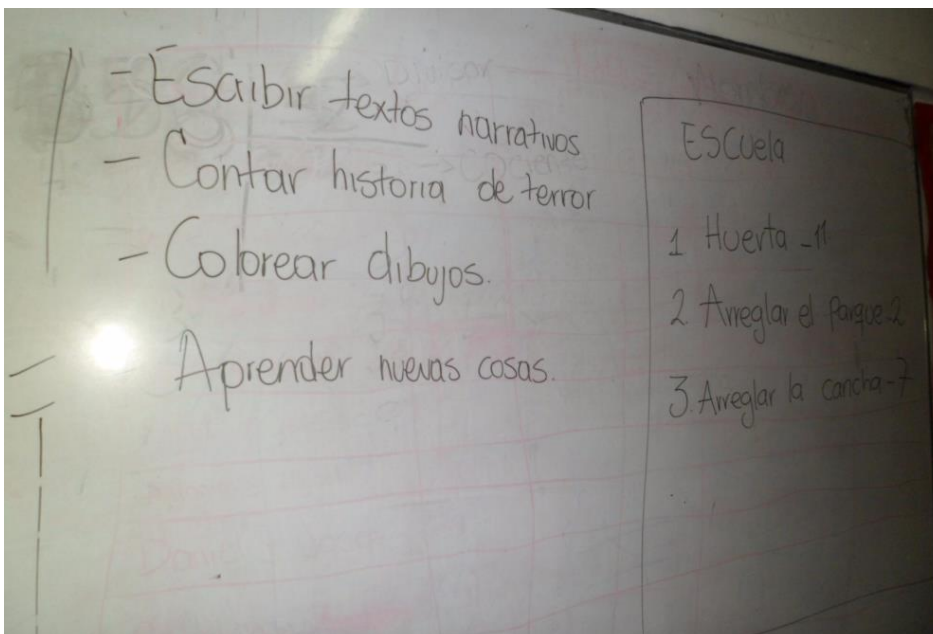 - Escribir textos narrativos
- Contar historia de terror
- Colorear dibujos.
Aprender nuevas cosas.
ESCuela
1 Huerta - 11
2 Arreglar el Parque-2
3. Arreglar la cancha-7